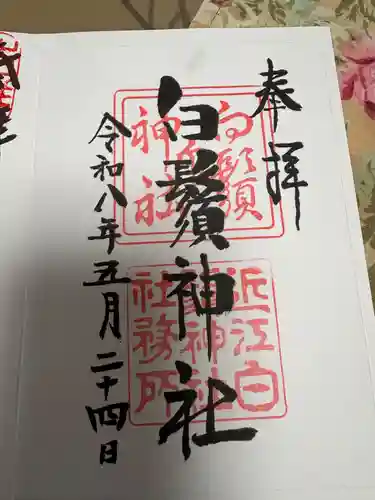 奉拝
白鬚神社
令和八年五月二十四日
白鬚神社
近江白鬚神社社務所